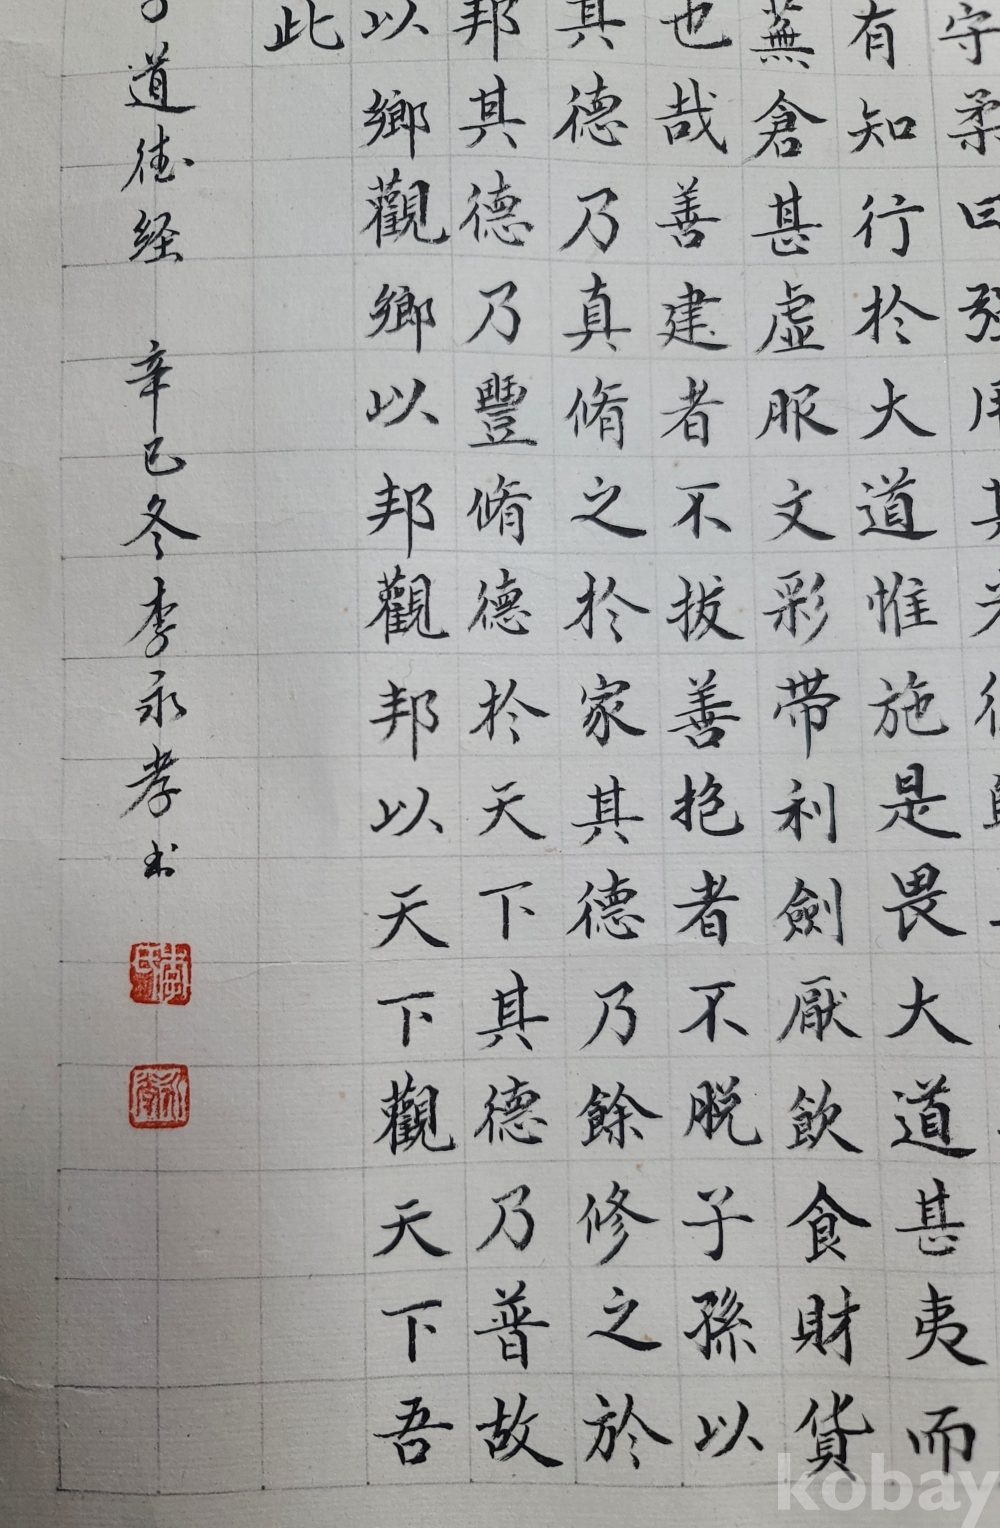 守柔曰強用其光復歸
有知行於大道惟施是畏大道甚夷而
蕪倉甚虛服文彩帶利劍厭飲食財貨
也哉善建者不拔善抱者不脱子孫以
其德乃真脩之於家其德乃餘修之於
邦其德乃豐脩德於天下其德乃普故
以鄉觀鄉以邦觀邦以天下觀天下吾
此
子道德经 辛巳冬李永孝书
kobay